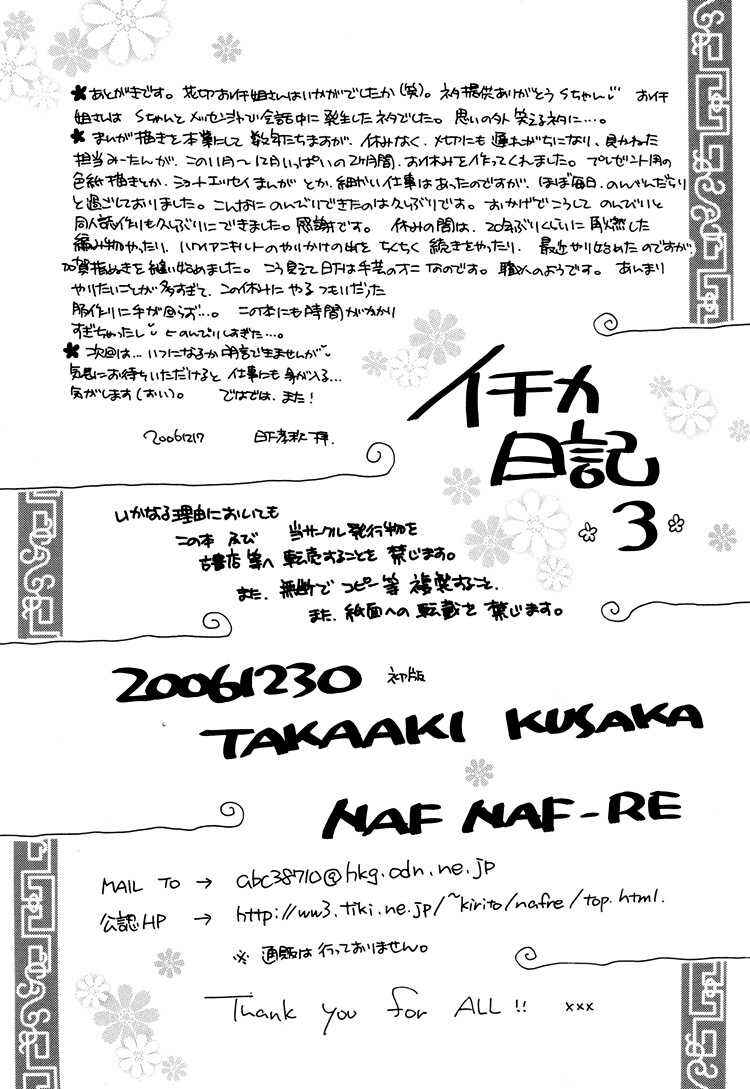 ★あとがきです。花切お仔姐さんはいかがでしたか(笑)。ネタ提供ありがとうSちゃん お仔
姐さんは Sちゃんとメッセンジャーで会話中に発生したネタでした。思いの外笑えるネタに…。
★まんが描きを本業にして数年たちますが、休みなく、メカにも遅れがちになり、見かねた
担当みーたんが、この11月〜12月いっぱいの2ヶ月間、お休みを作ってくれました。プレゼント用の
色紙描きとか、ショートエッセイまんがとか、細かい仕事はあったのですが、ほぼ毎日、のんべんだらり
と過ごしておりました。こんなにのんびりできたのは久しぶりです。おかげでこうしてのんびりと
同人誌作りも久しぶりにできました。感謝です。休みの間は、20年ぶりくらいに再燃した
編み物やったり、ハワイアンキルトのやりかけのをちくちく続きをやったり、最近やり始めたのですが
加賀指ぬきを縫い始めました。こう見えて日下は手芸のオニなのです。職人のようです。あんまり
やりたいことが多すぎて、この休みにやるつもりだった
服作りに手が回らず…。この本にも時間がかかり
すぎちゃったし のんびりしすぎた…。
★次回は…いつになるか明言できませんが
気長にお待ちいただけると仕事にも身が入る…
気がします(おい)。ではでは、また!
20061217 日下孝秋 拝.
イチカ
日記
3
いかなる理由においても
この本 及び 当サークル発行物を
古書店等へ転売することを禁じます。
また、無断でコピー等複製すること、
また、紙面への転載を禁じます。
20061230 初版
TAKAAKI KUSAKA
NAF NAF-RE
MAIL TO → abc38710@hkg.odn.ne.jp
公認HP → http://ww3.tiki.ne.jp/~kirito/nafre/top.html.
※ 通販は行っておりません。
Thank you for ALL!! xxx